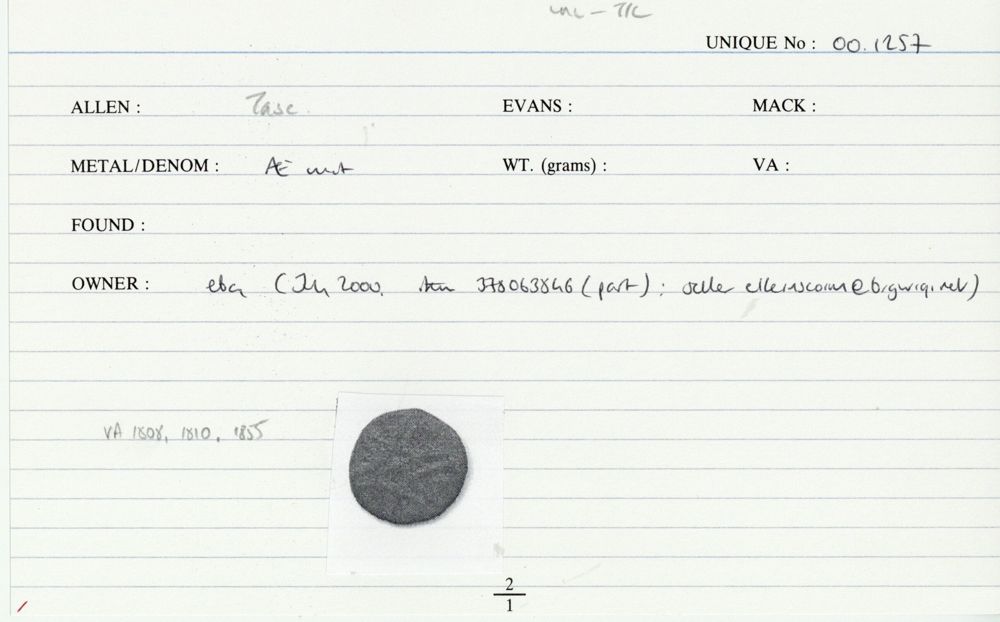 unc - TIC
UNIQUE No : 00.1257
ALLEN : Tasc. EVANS : MACK :
METAL/DENOM : Æ unit WT. (grams) : VA :
FOUND :
OWNER : ebay (July 2000, item 378063846 (part) : seller
VA 1808, 1810, 1855
2
1